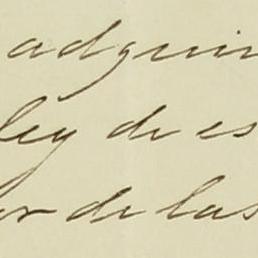 adquir
ley de es
or de las